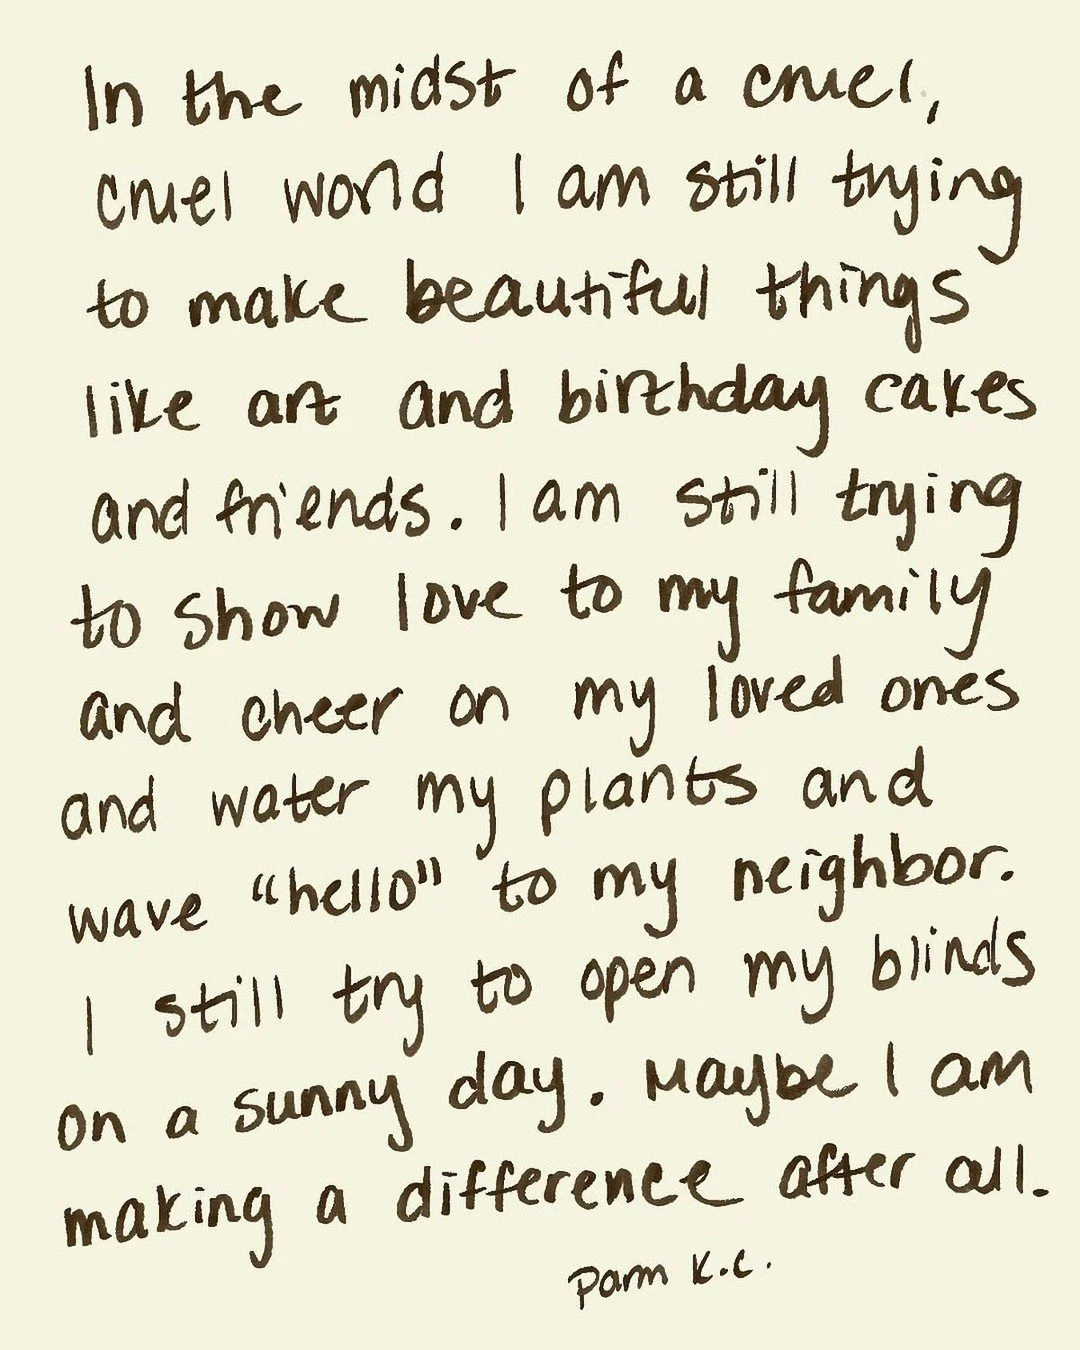 In the midst of a cruel,
cruel world I am still trying
to make beautiful things
like art and birthday cakes
and friends. I am still trying
to show love to my family
and cheer on my loved ones
and water my plants and
wave “hello” to my neighbor.
I still try to open my blinds
on a sunny day. Maybe I am
making a difference after all.
Parm K.C.